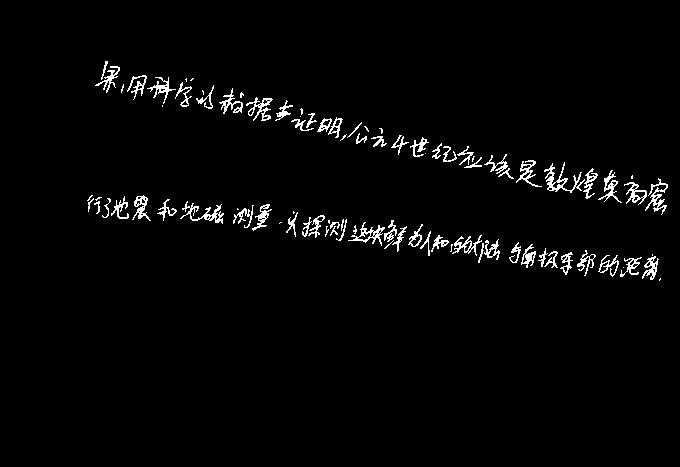 果,用科学的数据来证明,公元4世纪应该是敦煌莫高窟
行了地震和地磁测量,以探测这块鲜为人知的大陆与南极东部的距离.